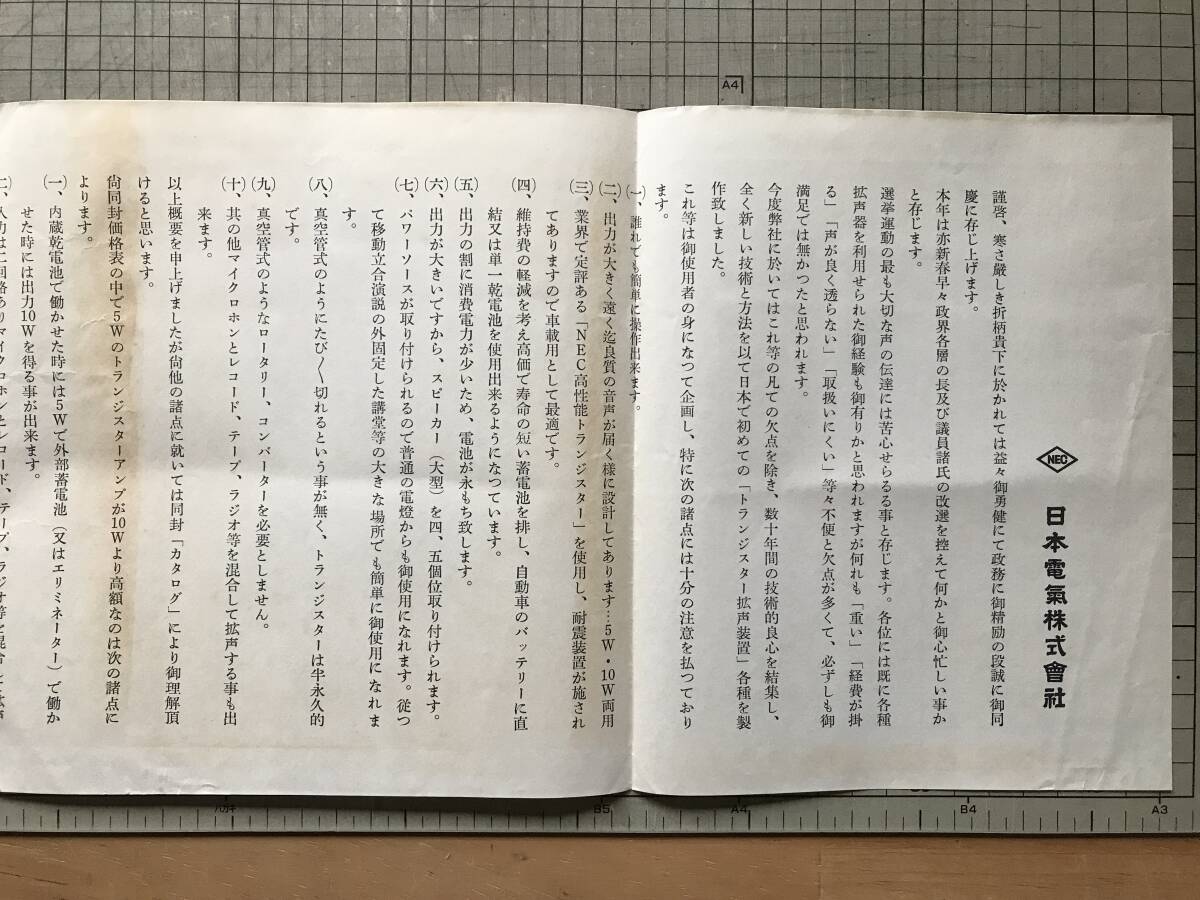 NEC
日本電氣株式會社
謹啓、寒さ嚴しき折柄貴下に於かれては益々御勇健にて政務に御精励の段誠に御同
慶に存じ上げます。
本年は亦新春早々政界各層の長及び議員諸氏の改選を控えて何かと御心忙しい事か
と存じます。
選挙運動の最も大切な声の伝達には苦心せらるる事と存じます。各位には既に各種
拡声器を利用せられた御経験も御有りかと思われますが何れも「重い」「経費が掛
る」「声が良く透らない」「取扱いにくい」等々不便と欠点が多くて、必ずしも御
満足では無かつたと思われます。
今度弊社に於いてはこれ等の凡ての欠点を除き、数十年間の技術的良心を結集し、
全く新しい技術と方法を以て日本で初めての「トランジスター拡声装置」各種を製
作致しました。
これ等は御使用者の身になつて企画し、特に次の諸点には十分の注意を払つており
ます。
(一)、誰れでも簡単に操作出来ます。
(二)、出力が大きく遠く迄良質の音声が届く様に設計してあります…5W・10W両用
(三)、業界で定評ある「NEC高性能トランジスター」を使用し、耐震装置が施され
てありますので車載用として最適です。
(四)、維持費の軽減を考え高価で寿命の短い蓄電池を排し、自動車のバッテリーに直
結又は単一乾電池を使用出来るようになつています。
(五)、出力の割に消費電力が少いため、電池が永もち致します。
(六)、出力が大きいですから、スピーカー（大型）を四、五個位取り付けられます。
(七)、パワーソースが取り付けられるので普通の電燈からも御使用になれます。従つ
て移動立合演説の外固定した講堂等の大きな場所でも簡単に御使用になれま
す。
(八)、真空管式のようにたび〱切れるという事が無く、トランジスターは半永久的
です。
(九)、真空管式のようなロータリー、コンバーターを必要としません。
(十)、其の他マイクロホンとレコード、テープ、ラジオ等を混合して拡声する事も出
来ます。
以上概要を申上げましたが尙他の諸点に就いては同封「カタログ」により御理解頂
けると思います。
尙同封価格表の中で5Wのトランジスターアンプが10Wより高額なのは次の諸点に
よります。
(一)、内蔵乾電池で働かせた時には5Wで外部蓄電池（又はエリミネーター）で働か
せた時には出力10Wを得る事が出来ます。
A4
B5
A4
B4
A3